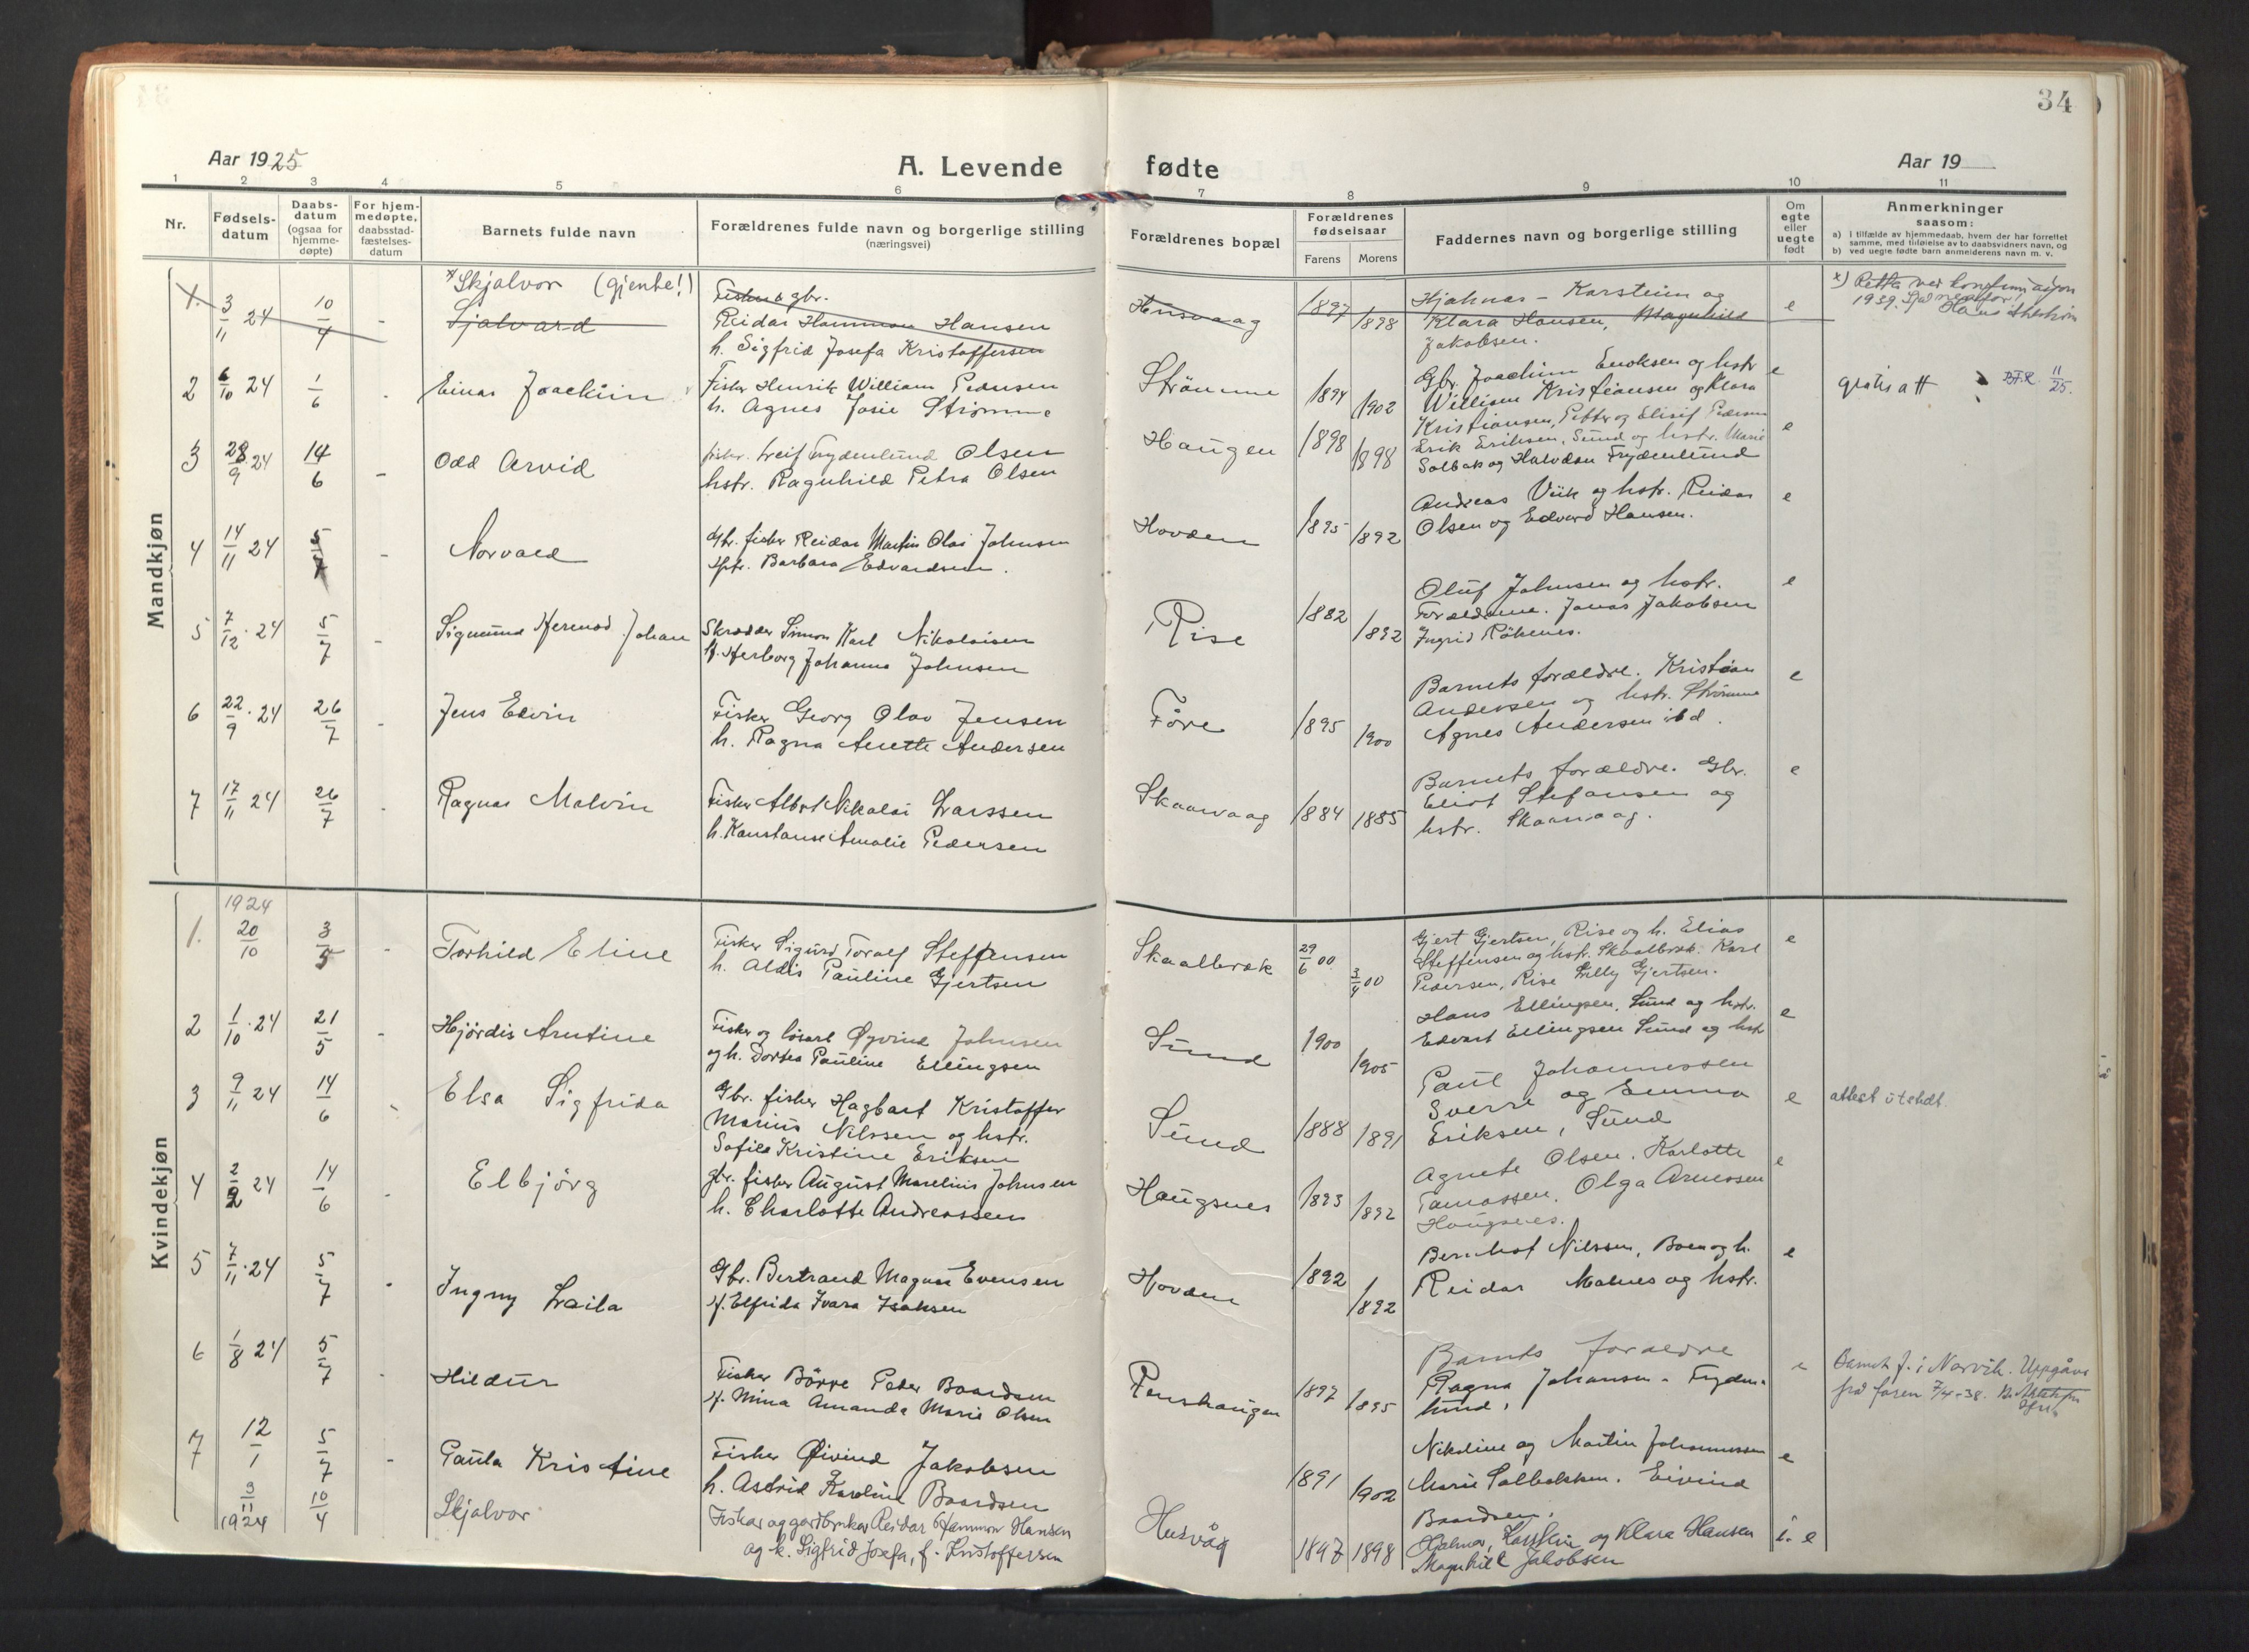 34
Aar 1925
A. Levende fødte
Aar 19
1 2 3 4 5 6 7 8 9 10 11
Nr.
Fødsels-
datum
Daabs-
datum
(ogsaa for
hjemme-
døpte)
For hjem-
medøpte,
daabsstad-
fæstelses-
datum
Barnets fulde navn
Forældrenes fulde navn og borgerlige stilling
(næringsvei)
Forældrenes bopæl
Forældrenes
fødselsaar
Farens Morens
Faddernes navn og borgerlige stilling
Om
egte
eller
uegte
født
Anmerkninger
saasom:
a) i tilfælde av hjemmedaab, hvem der har forrettet
samme, med tilføielse av to daabsvidners navn, og
b) ved uegte fødte barn anmelderens navn m. v.
Mandkjøn
1. 3/11 24 10/4 -
*Skjalvor (gjente!)
Sjalvard
Fisker og gbr.
Reidar Hammon Hansen
h. Sigfrid Josefa Kristoffersen
Husvaag 1897 1898
Hjalmar - Karsteim og
Klara Hansen, Magnhild
Jakobsen.
e
x) Retta ved konfirmasjon
1939.
2 6/10 24 1/6 -
Einar Joachim
Fisker Henrik William Pedersen
h. Agnes Josie Strømme
Strömme 1894 1902
Gbr. Joachim Enoksen og hstr
William Kristiansen og Klara
Kristiansen, Petter og Elisif Pedersen
e
gratis att 11/25.
3 28/9 24 14/6 -
Odd Arvid
fisker. Leif Frydenlund Olsen
hstr. Ragnhild Petra Olsen
Haugen 1898 1898
Erik Eriksen, Sund og hstr. Marie
Solbak og Halvdan Frydenlund
e
4 14/11 24 5/7 -
Norvald
Gbr. fisker Reidar Martin Olai Johnsen
Hstr. Barbara Edvardsen.
Hovden 1895 1892
Andreas Viik og hstr. Reidar
Olsen og Edvard Hansen.
e
5 7/12. 24 5/7 -
Sigmund Hermod Johan
Skrædder Simon Karl Nikolaisen
H. Herborg Johanna Johnsen
Rise 1882 1892
Oluf Johnsen og hstr.
Forældrene. Jonas Jakobsen
Ingrid Rökenes.
e
6 22/9. 24 26/7 -
Jens Edvin
Fisker Georg Olav Jensen
h. Ragna Anette Andersen
Före 1895 1900
Barnets forældre. Kristian
Andersen og hstr. Strömme
Agnes Andersen ibd.
e
7 17/11 24 26/7 -
Ragnar Malvin
Fisker Albert Nikolai Larssen
h. Konstanse Amalie Pedersen
Skaarvaag 1884 1885
Barnets forældre. Gbr.
Eliot Stefansen og
hstr. Skaarvaag.
e
Kvindekjøn
1924
1. 20/10 3/5 -
Torhild Eline
Fisker Sigurd Toralf Steffensen
h. Aldis Pauline Gjertsen
Skaalbræk 29/6 00 3/4 00
Gjert Gjertsen, Rise og h. Elias
Steffensen og hstr. Skaalbræk. Karl
Pedersen, Rise Willy Gjertsen.
e
2 1/10. 24 21/5 -
Hjördis Arntine
Fisker og løsarb Øyvind Johnsen
og h. Dortea Pauline Ellingsen
Sund 1900 1905
Hans Ellingsen. Sund og hstr.
Edvart Ellingsen Sund og hstr
e
3 9/11 24 14/6
Elsa Sigfrida
Gbr. fisker Hagbart Kristoffer
Marius Nilssen og hstr.
Sofile Kristine Eriksen
Sund 1888 1891
Paul Johannessen
Sverre og Emma
Eriksen, Sund
e
attest utstedt.
4 2/2 24 14/6 -
Elbjörg
gbr. fisker August Marelius Johnsen
h. Charlotte Andreassen
Haugsnes 1893 1892
Agnete Olsen. Karlotte
Tamassen. Olga Arnessen
Haugsnes.
e
5 7/11. 24 5/7 -
Ingny Laila
Gbr. Bertrand Magnus Evensen
H. Elfrida Ivara Isaksen
Hovden 1892 1892
Bernhof Nilssen, Boen og h.
Reidar Malnes og hstr.
e
6 1/8 24 5/7 -
Hildur
Fisker Börre Peder Baardsen
H. Mina Amanda Marie Olsen
Renshaugen 1897 1895
Barnets forældre
Ragna Johansen - Fryden-
lund.
e
Barnet f. i Narvik. Uppgåve
frå faren 7/4-38.
7 12/1 5/7 -
Paula Kristine
Fisker Øivind Jakobsen
h. Astrid Karoline Baardsen
1891 1902
Nikoline og Martin Johannessen
Marie Solbakken. Eivind
Baardsen.
e
3/11 1924 10/4
Skjalvor
Fiskar og gardbrukar Reidar Hammon Hansen
og k. Sigfrid Josefa, f. Kristoffersen
Husvåg 1897 1898
Hjalmar, Karstein og Klara Hansen
Magnhild Jakobsen
i. e